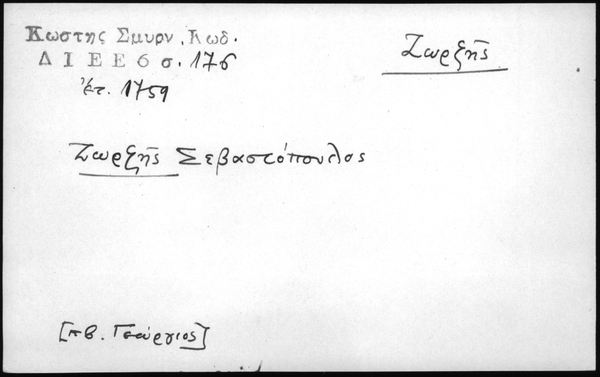 Κωστης Σμυρν. Κωδ.
Δ Ι Ε Ε 6 σ. 176
Ἔτ. 1759
Ζωρζῆς
Ζωρζῆς Σεβαστόπουλος
[πβ. Γεώργιος]